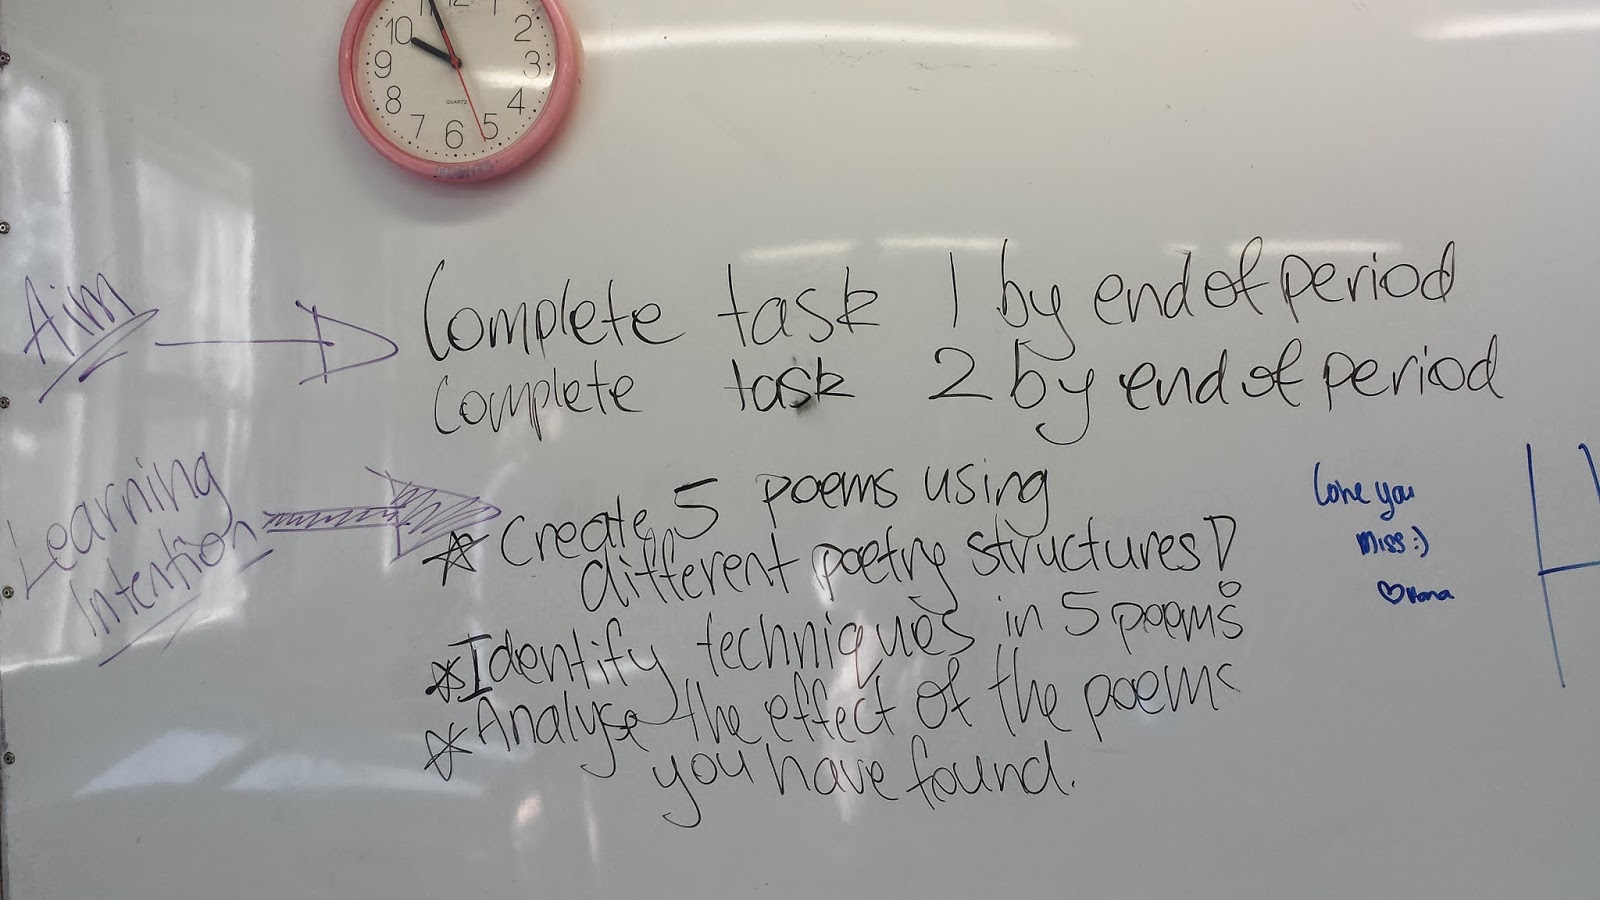 11 12 1
10 2
9 3
8 4
7 6 5
QUARTZ
Aim
Complete task 1 by end of period
Complete task 2 by end of period
Learning
Intention
Create 5 poems using
different poetry structures!
Identify techniques in 5 poems
Analyse the effect of the poems
you have found.
Love you
miss :)
♡ Hana